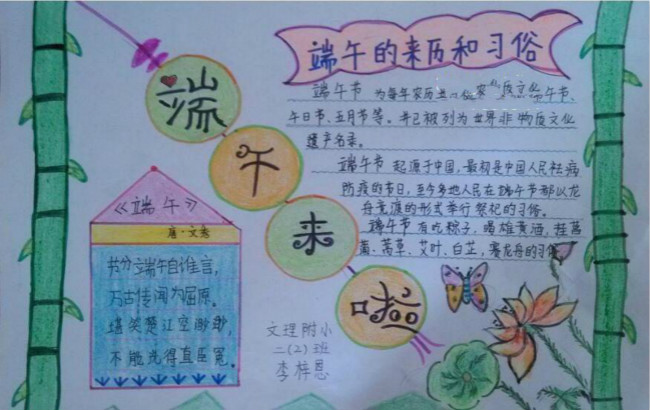 端午的来历和习俗
端
午
来
啦
端午节 为每年农历五
午日节、五月节等。并已被列为世界非物质文化
遗产名录。
端午节 起源于中国,最初是中国人民祛病
防疫的节日,至今各地人民在端午节都以龙
舟竞渡的形式举行祭祀的习俗。
端午节 有吃粽子,喝雄黄酒,挂菖
蒲、蒿草、艾叶、白芷,赛龙舟的习俗
《端午》
唐·文秀
节分端午自谁言,
万古传闻为屈原。
堪笑楚江空渺渺,
不能洗得直臣冤。
文理附小
二(2)班
李梓恩